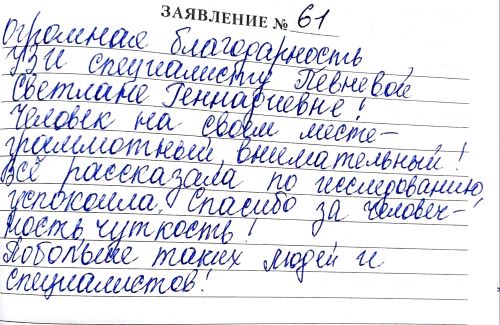 ЗАЯВЛЕНИЕ № 61
огромная благодарность
узи специалисту Певневой
Светлане Геннадиевне!
Человек на своем месте -
грамотный, внимательный!
Всё рассказала по исследованию,
успокоила. Спасибо за человеч-
ность, чуткость!
Побольше таких людей и
специалистов!